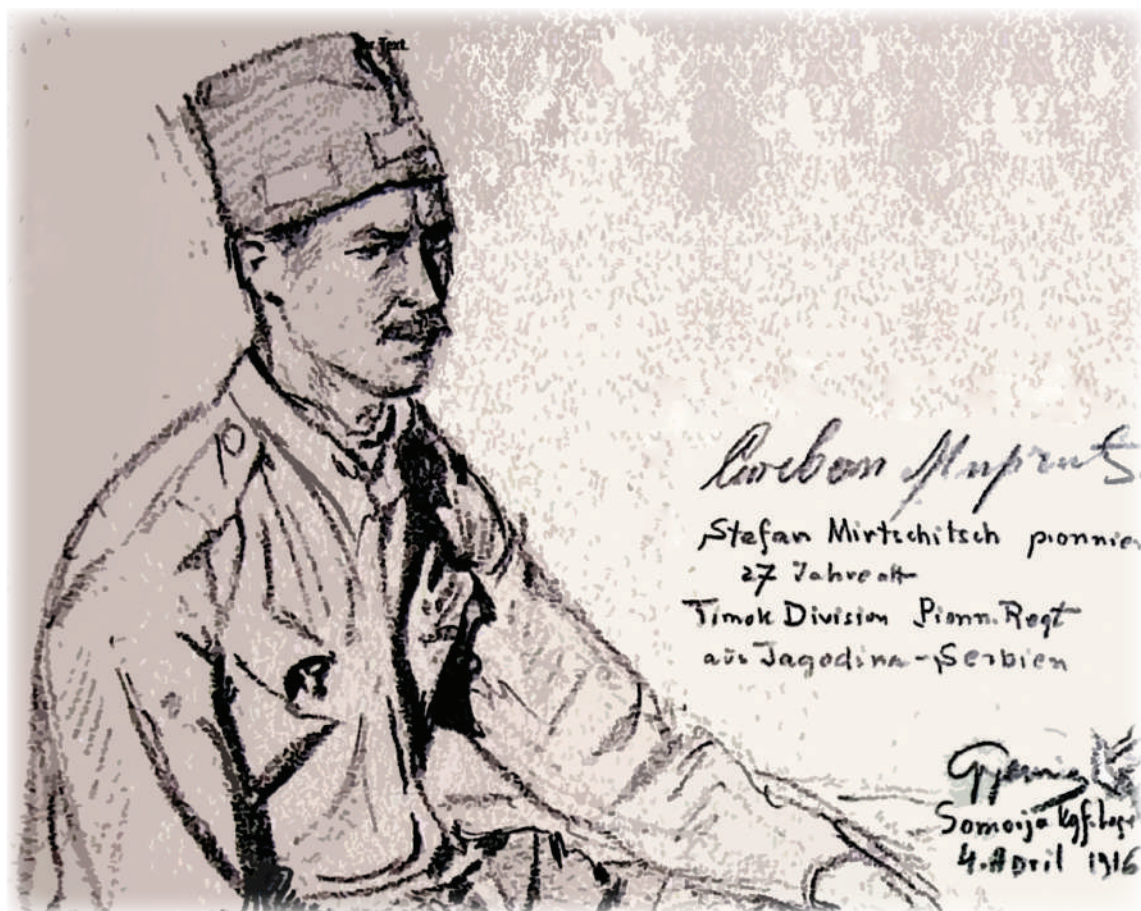 Text.
Stefan Mirtschitsch pionnier
27 Jahre alt
Timok Division Pionn. Regt
aus Jagodina - Serbien
Somorja Kgf. Lag
4. April 1916